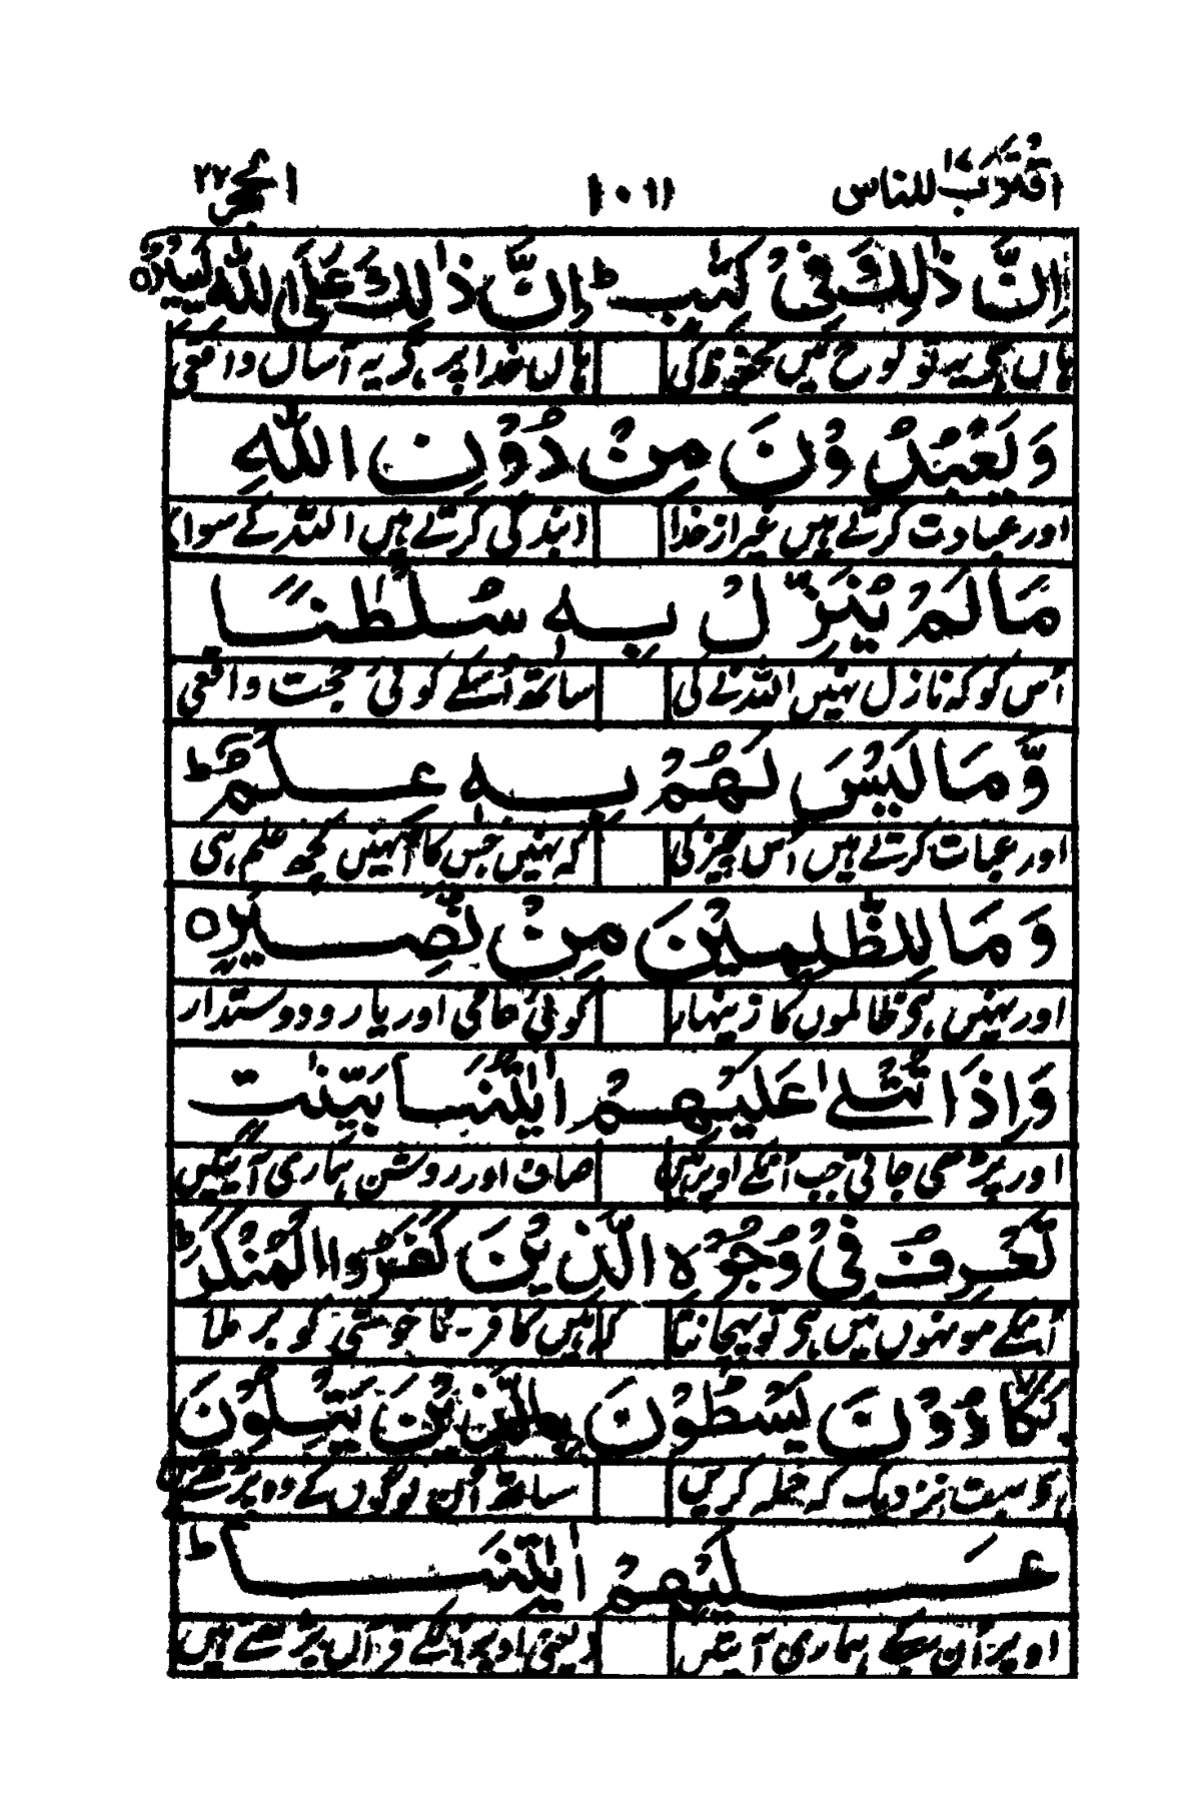 اقترب للناس ١٧ ١٠٦١ الحج ٢٢
اِنَّ ذٰلِكَ فِیْ كِتٰبٍ ؕ اِنَّ ذٰلِكَ عَلَی اللّٰهِ یَسِیْرٌ ○
ہاں ہی یہ تو لوح میں محفوظ کی ہاں خدا پر ہی گر یہ آساں واقعی
وَ یَعْبُدُوْنَ مِنْ دُوْنِ اللّٰهِ
اور عبادت کرتے ہیں غیر از خدا بندگی کرتے ہیں اللہ کے سوا
مَا لَمْ یُنَزِّلْ بِهٖ سُلْطٰنًا
اُس کو کہ نازل نہیں اللہ نے کی ساتھ اُسکے کوئی حجت واقعی
وَّ مَا لَیْسَ لَهُمْ بِهٖ عِلْمٌ ؕ
اور عبادت کرتے ہیں اُس چیز کی کہ نہیں جس کا اُنہیں کچھ علم ہی
وَ مَا لِلظّٰلِمِیْنَ مِنْ نَّصِیْرٍ ○
اور نہیں ہی ظالموں کا زینہار کوئی حامی اور یار و دوستدار
وَ اِذَا تُتْلٰی عَلَیْهِمْ اٰیٰتُنَا بَیِّنٰتٍ
اور پڑھی جاتی جب اُنکے اوپر ہیں صاف اور روشن ہماری آیتیں
تَعْرِفُ فِیْ وُجُوْهِ الَّذِیْنَ كَفَرُوا الْمُنْكَرَ ؕ
اُنکے مونہوں میں ہی تو پہچانتا کہ ہیں کافر۔ ناخوشی کو برملا
یَكَادُوْنَ یَسْطُوْنَ بِالَّذِیْنَ یَتْلُوْنَ
ہی بہت نزدیک کہ حملہ کریں ساتھ اُن لوگوں کے وہ پڑھتے ہیں
عَلَیْهِمْ اٰیٰتِنَا ؕ
اوپر اُن سبکے ہماری آیتیں یعنی اوپر اُنکے قرآں پڑھتے ہیں